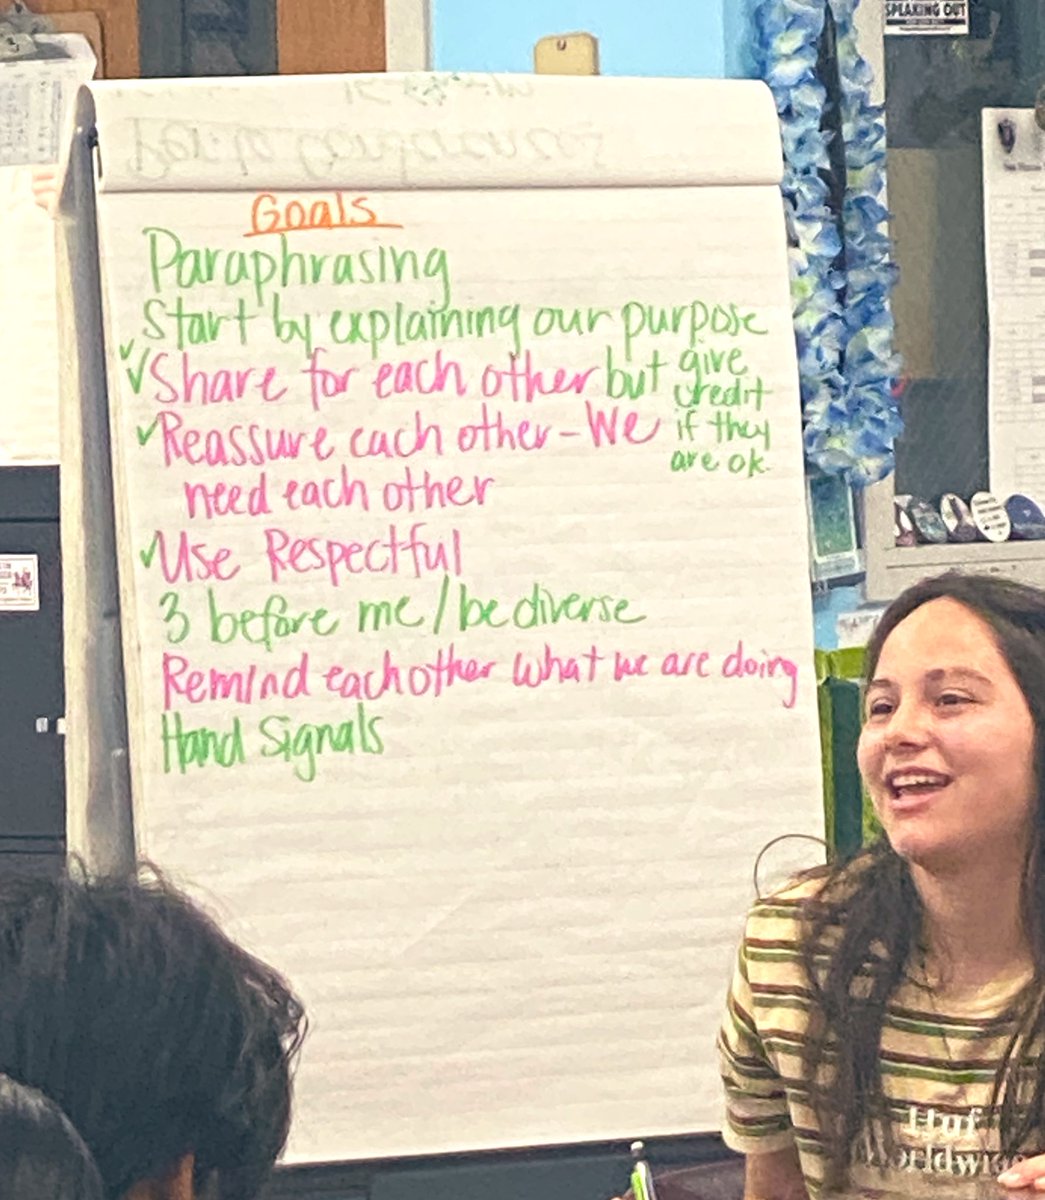 SPEAKING OUT
Goals
Paraphrasing
Start by explaining our purpose
Share for each other but give credit if they are ok.
Reassure each other - We
need each other
Use Respectful
3 before me / be diverse
Remind each other what we are doing
Hand Signals
Huf
Worldwide